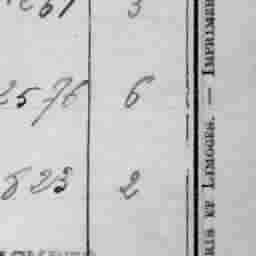 3
2576 6
823 2
RIS ET LIMOGES. — IMPRIMER